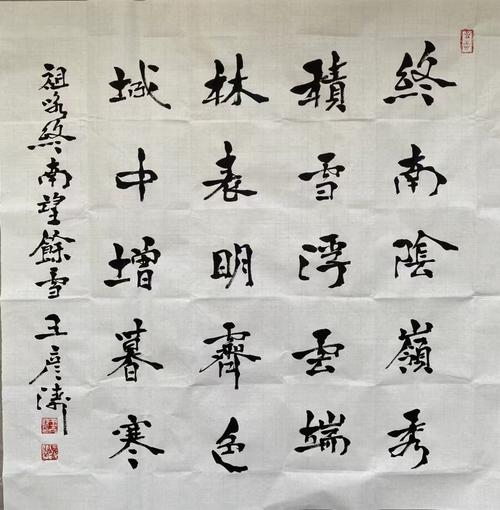 終南陰嶺秀
積雪浮雲端
林表明霽色
城中增暮寒
祖咏終南望餘雪 王彦濤